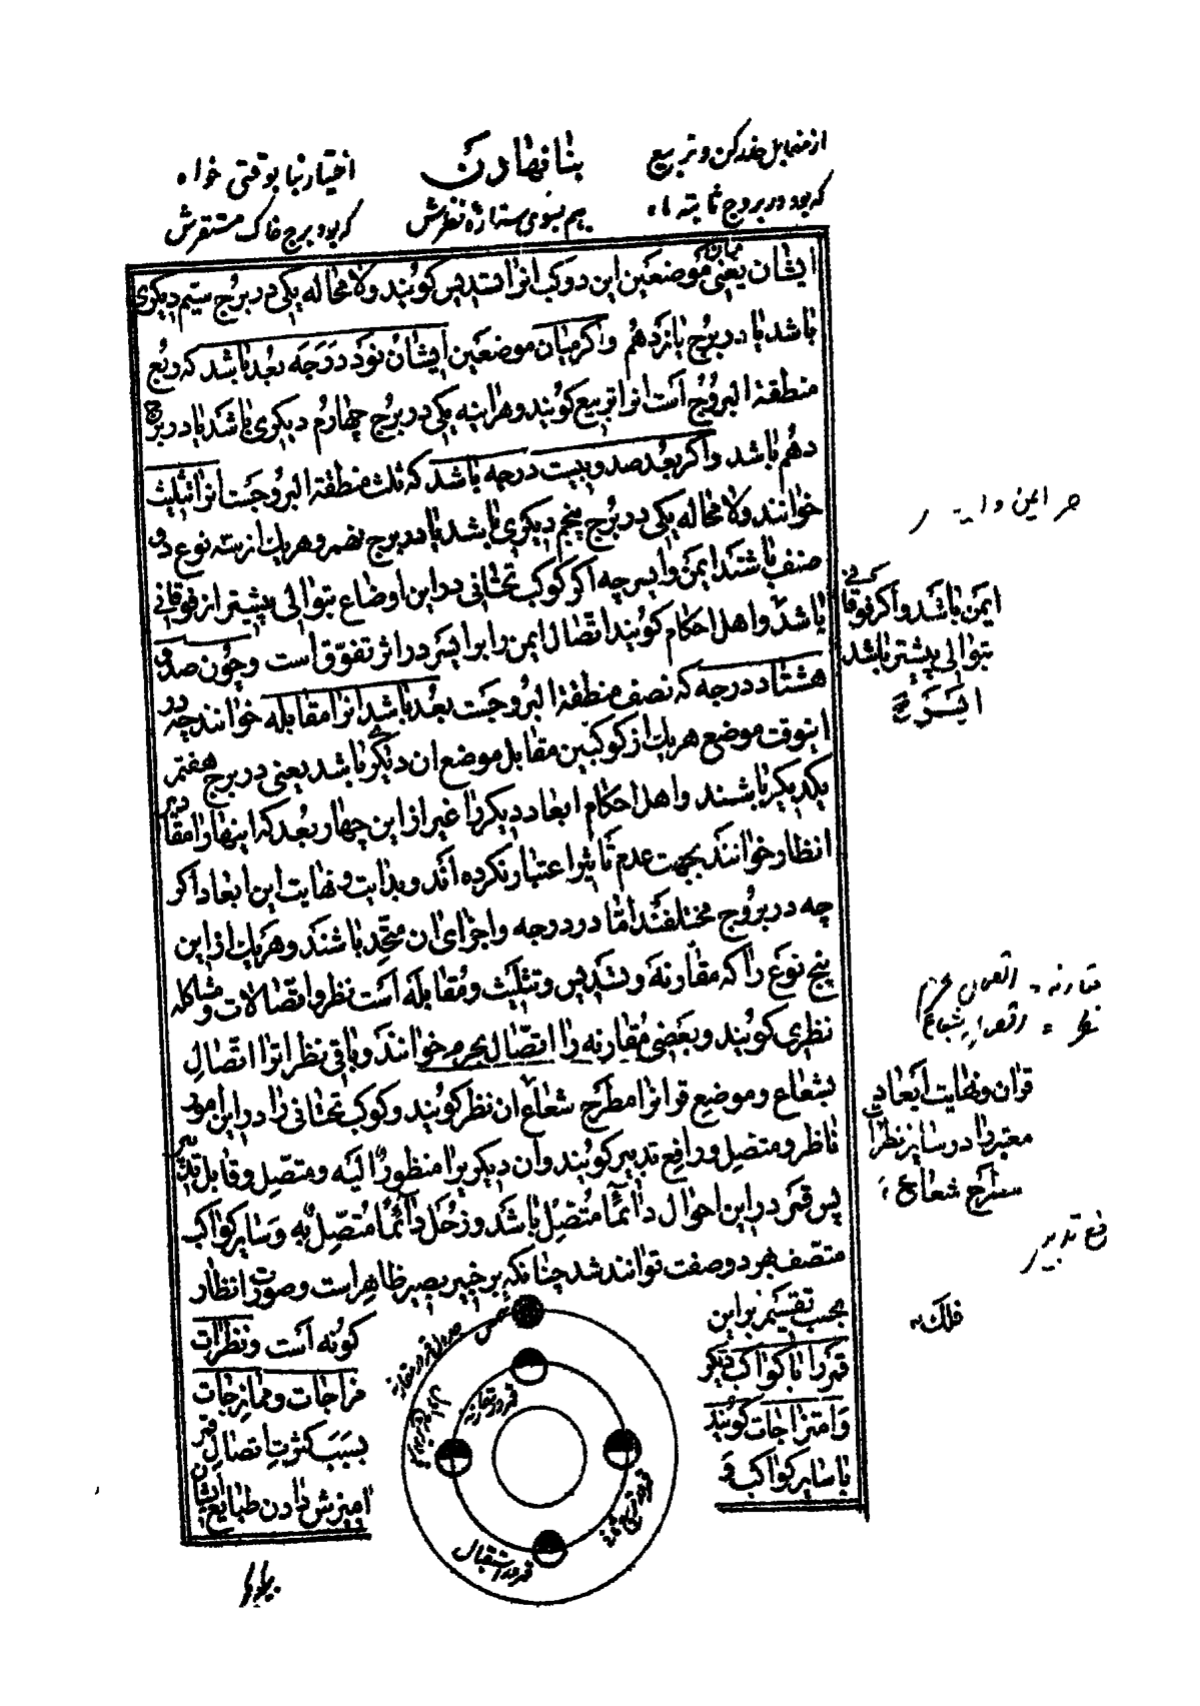 از مقابل حذر کن و تربیع
بنا نهادن
اختیار بنا بوقتی خواه
که بود در بروج ثابته ماه
هم بسوی ستاره نظرش
که بود برج خاک مستقرش
ایشان یعنی میان موضعین این دو کوکب انرا تسدیس کویند ولا محاله یکی در برج سیم دیکری
باشد یا در برج یازدهم واکر میان موضعین ایشان نود درجه بعد باشد که ربع
منطقة البروج است انرا تربیع کویند وهراینه یکی در برج چهارم دیکری باشد یا در برج
دهم باشد واکر بعد صد وبیست درجه باشد که ثلث منطقة البروجست انرا تثلیث
خوانند ولا محاله یکی در برج پنجم دیکری باشد یا در برج نهم وهریک از سه نوع دو
صنف باشند ایمن وایسر چه اکر کوکب تحتانی در این اوضاع بتوالی پیشتر از فوقانی
باشد واهل احکام کویند اتصال ایمن را بر ایسر در اثر تفوق است وچون صد و
هشتاد درجه که نصف منطقة البروجست بعد باشد انرا مقابله خوانند چه در
اینوقت موضع هریک از کوکبین مقابل موضع ان دیکر باشد یعنی در برج هفتم
یکدیکر باشند واهل احکام ابعاد دیکر را غیر از این چهار بعد که اینها را مقادیر
انظار خوانند بجهت عدم تأثیر اعتبار نکرده اند وبدایت ونهایت این ابعاد اکر
چه در بروج مختلفند اما در درجه واجزای ان متحد باشند وهریک از این
پنج نوع را که مقارنه وتسدیس وتثلیث ومقابله است نظر واتصالات ومشاکله
نظری کویند وبعضی مقارنه را اتصال بجرم خوانند وباقی نظراترا اتصال
بشعاع وموضع قرانرا مطرح شعاع ان نظر کویند وکوکب تحتانی را در این امور
ناظر ومتصل ورافع تدبیر کویند وان دیکریرا منظور الیه ومتصل وقابل تدبیر
پس قمر در این احوال دائما متصل باشد وزحل دائما متصل به وسایر کواکب
متصف بهر دو صفت توانند شد چنانکه بر خبیر بصیر ظاهر است وصورت انظار
بحسب تقسیم بر این
کونه است ونظرات
قمر را با کواکب دیکر
مزاجات وممازجات
وامتزاجات کویند
بسبب کثرت اتصال قمر
با سایر کواکب و
امیزش دادن طبایع ایشان
شمس
قمر در مقارنه
قمر در تربیع
قمر در استقبال
ایمن باشد واکر فوقانی
بتوالی پیشتر باشد
ایسر
مقارنه = اتصال بجرم
نظر = اتصال بشعاع
قران ونهایت ابعاد
معتبر را در سایر نظرا
مطرح شعاع
رفع تدبیر
فلک